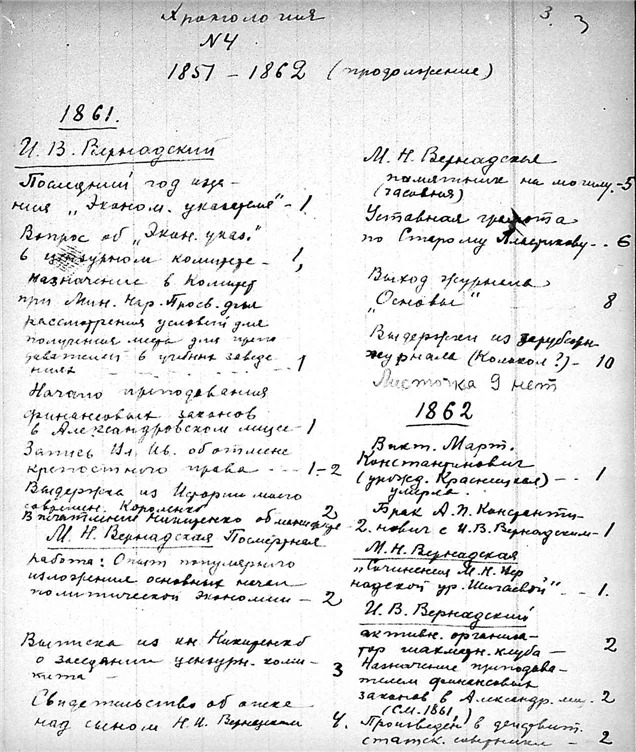 Хронология
3. 3
N4
1857 – 1862 (продолжение)
1861.
И. В. Вернадский
Последний год изда-
ния „Эконом. указателя“ – 1.
Вопрос об „Экон. указ.“
в цензурном комитете – 1,
Назначение в Комитет
при Мин. Нар. Просв. для
рассмотрения условий для
получения места для препо
давателей в учебных заведе-
ниях – 1
Начало преподавания
финансовых законов
в Александровском лицее – 1
Запись Ив. об отмене
крепостного права – 1–2
Выдержка из Истории моего
современ. Короленко 2
Впечатление Никитенко об манифесте
М. Н. Вернадская Посмертная
работа: Опыт популярного
изложения основных начал
политической экономии – 2
Выписка из кн. Никитенко
о заседании цензурн. коми-
тета – 3
Свидетельство об опеке
над сыном Н. И. Вернадским 4.
М. Н. Вернадская
памятник на могилу. – 5
(часовня)
Уставная грамота
по Старому – 6
Выход журнала
„Основы“ – 8
Выдержки из зарубежн.
журнала (Колокол?) – 10
Листочка 9 нет
1862
Викт. Март.
Константинович
(урожд. Красницкая) – 1
умерла.
Брак А. П. Константи-
нович с И. В. Вернадским – 1
2.
М. Н. Вернадская
„Сочинения М. Н. Вер
надской ур. Шигаевой“ – 1.
И. В. Вернадский
активн. организа-
тор шахматн. клуба – 2
Назначение преподава-
телем финансовых
законов в Александр. лиц. – 2
(см. 1861)
Произведен в действит.
статск. советники – 2